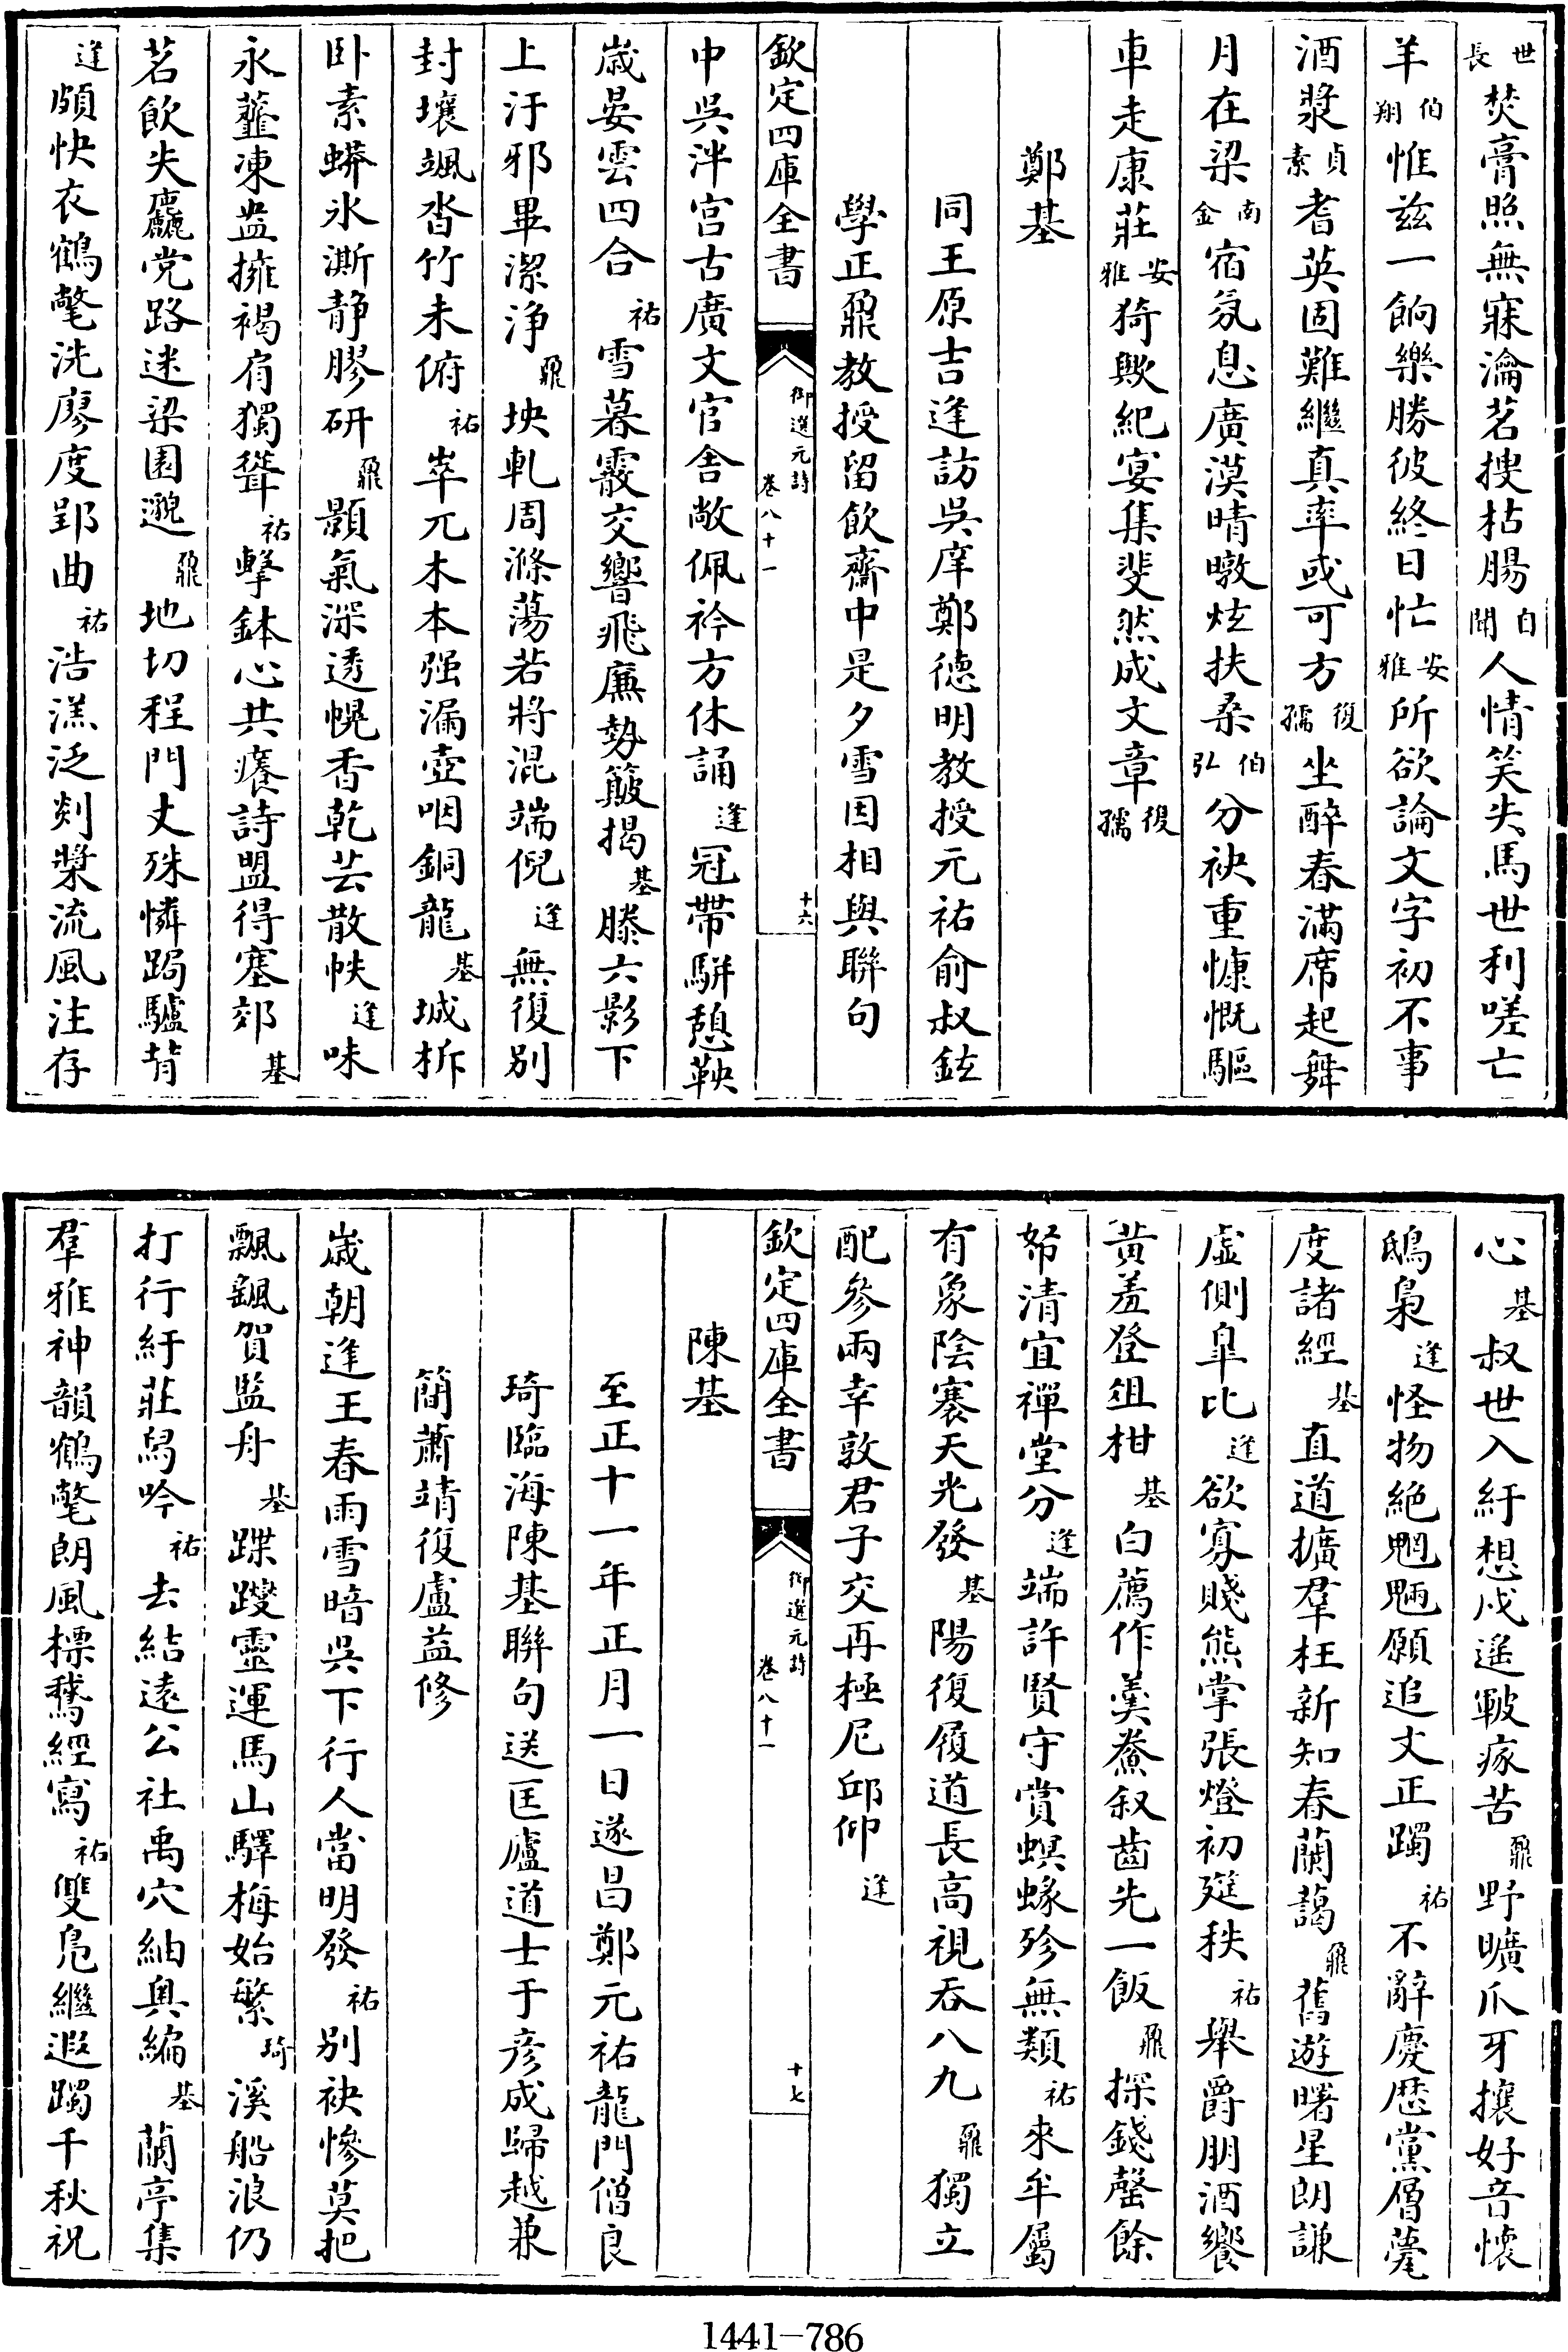 世長焚膏照無寐瀹茗搜枯腸自聞人情笑失馬世利嗟亡
羊伯翔惟兹一餉樂勝彼終日忙安雅所欲論文字初不事
酒漿貞素耆英固難繼真率或可方復孺坐醉春滿席起舞
月在梁南金宿氛息廣漠晴暾炫扶桑伯弘分袂重慷慨驅
車走康莊安雅猗歟紀宴集斐然成文章復孺
鄭基
同王原吉逢訪吳庠鄭德明教授元祐俞叔鉉
學正鼐教授留飲齋中是夕雪因相與聯句
欽定四庫全書
御選元詩 卷八十一
十六
中吳泮宫古廣文官舍敞佩衿方休誦逢冠帶駢憩鞅
歲晏雲四合祐雪暮霰交響飛廉勢簸揚基滕六影下
上汙邪畢潔浄鼐坱軋周滌蕩若將混端倪逢無復别
封壤颯沓竹未俯祐崒兀木本强漏壺咽銅龍基城柝
卧素蟒氷澌静膠研鼐顥氣深透幌香乾芸散帙逢味
永虀凍盎擁褐肩獨聳祐擊鉢心共癢詩盟得塞郊基
茗飲失麤党路迷梁園邈鼐地切程門丈殊憐跼驢背
逢頗快衣鶴氅洗廖度郢曲祐浩漾泛剡槳流風注存
心基叔世入紆想戍遥皸瘃苦鼐野曠爪牙攘好音懷
鴟梟逢怪物絶魍魎願追文正躅祐不辭慶厯黨層甍
度諸經基直道擴羣枉新知春蘭藹鼐舊遊曙星朗謙
虚側臯比逢欲寡賤熊掌張燈初筵秩祐舉爵朋酒饗
黄羞登俎柑基白薦作羹鯗叙齒先一飯鼐探錢罄餘
帑清宜禪堂分逢端許賢守賞螟蝝殄無類祐來牟屬
有象陰褰天光發基陽復履道長高視吞八九鼐獨立
配參兩幸敦君子交再極尼邱仰逢
欽定四庫全書
御選元詩 卷八十一
十七
陳基
至正十一年正月一日遂昌鄭元祐龍門僧良
琦臨海陳基聯句送匡廬道士于彦成歸越兼
簡蕭靖復盧益修
歲朝逢王春雨雪暗吳下行人當明發祐别袂慘莫把
飄飄賀監舟基蹀躞靈運馬山驛梅始繁琦溪船浪仍
打行紆莊舄吟祐去結遠公社禹穴紬奥編基蘭亭集
羣雅神韻鶴氅朗風標鵞經寫祐雙凫繼遐躅千秋祝
1441-786